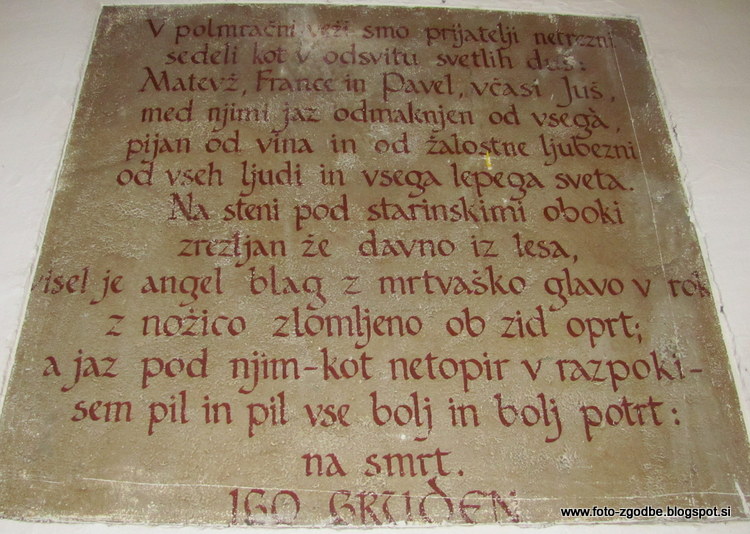 V polmračni veži smo prijatelji netrezni
sedeli kot v odsvitu svetlih duš:
Matevž, France in Pavel, včasi Juš,
med njimi jaz odmaknjen od vsega,
pijan od vina in od žalostne ljubezni
od vseh ljudi in vsega lepega sveta.
Na steni pod starinskimi oboki
zrezljan že davno iz lesa,
visel je angel blag z mrtvaško glavo v rok
z nožico zlomljeno ob zid oprt;
a jaz pod njim-kot netopir v razpoki-
sem pil in pil vse bolj in bolj potrt:
na smrt.
IGO GRUDEN
www.foto-zgodbe.blogspot.si